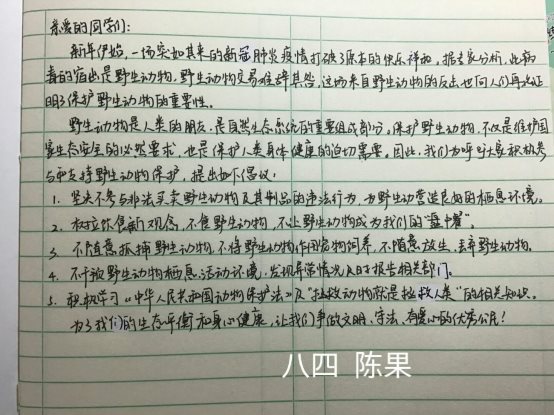 亲爱的同学们:
新年伊始,一场突如其来的新冠肺炎疫情打破了原本的快乐祥和。据专家分析,此病
毒的宿主是野生动物,野生动物交易难辞其咎,这场来自野生动物的反击也向人们再次证
明了保护野生动物的重要性。
野生动物是人类的朋友,是自然生态系统的重要组成部分。保护野生动物,不仅是维护国
家生态安全的必然要求,也是保护人类身体健康的迫切需要。因此,我们为呼吁大家积极参
与和支持野生动物保护,提出如下倡议:
1. 坚决不参与非法买卖野生动物及其制品的违法行为,为野生动物营造良好的栖息环境。
2. 树立饮食新观念,不食野生动物,不让野生动物成为我们的"盘中餐"。
3. 不随意抓捕野生动物,不将野生动物作为宠物饲养,不随意放生、丢弃野生动物。
4. 不干扰野生动物栖息、活动环境,发现异常情况及时报告相关部门。
5. 积极学习《中华人民共和国动物保护法》及"拯救动物就是拯救人类"的相关知识。
为了我们的生态平衡和身心健康,让我们争做文明、守法、有爱心的优秀公民!
八四 陈果